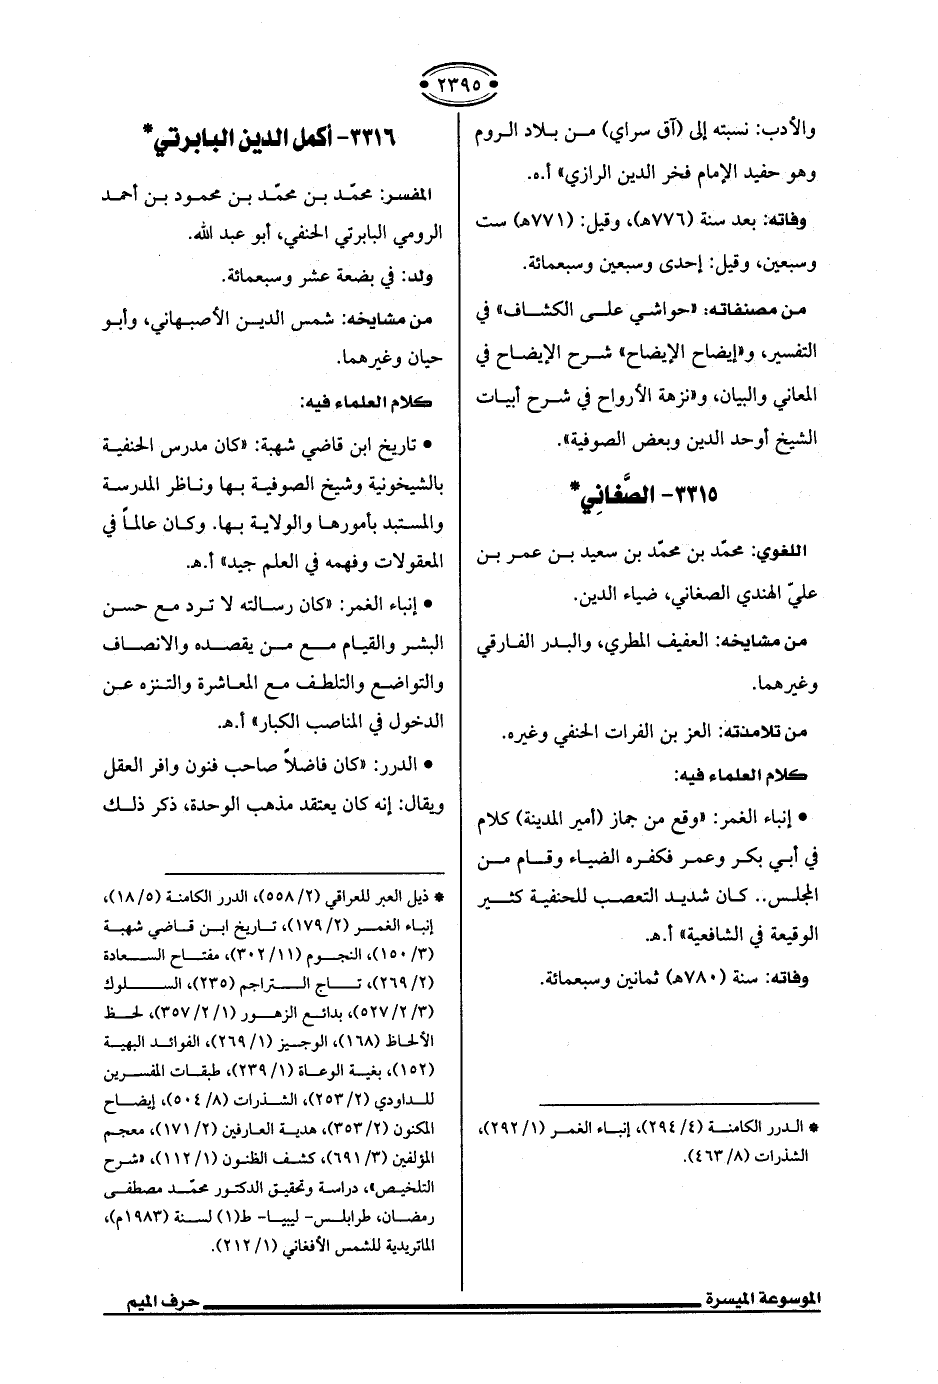 ٢٣٩٥
والأدب: نسبته إلى (آق سراي) من بلاد الروم
وهو حفيد الإمام فخر الدين الرازي» أ.ه.
وفاته: بعد سنة (٧٧٦هـ)، وقيل: (٧٧١هـ) ست
وسبعين، وقيل: إحدى وسبعين وسبعمائة.
من مصنفاته: «حواشي على الكشاف» في
التفسير، و«إيضاح الإيضاح» شرح الإيضاح في
المعاني والبيان، و«نزهة الأرواح في شرح أبيات
الشيخ أوحد الدين وبعض الصوفية».
٣٣١٥- الصَّغَانِي *
اللغوي: محمّد بن محمّد بن سعيد بن عمر بن
عليّ الهندي الصغاني، ضياء الدين.
من مشايخه: العفيف المطري، والبدر الفارقي
وغيرهما.
من تلامذته: العز بن الفرات الحنفي وغيره.
كلام العلماء فيه:
• إنباء الغمر: «وقع من جماز (أمير المدينة) كلام
في أبي بكر وعمر فكفره الضياء وقام من
المجلس.. كان شديد التعصب للحنفية كثير
الوقيعة في الشافعية» أ.هـ.
وفاته: سنة (٧٨٠هـ) ثمانين وسبعمائة.
* الدرر الكامنة (٤/ ٢٩٤)، إنباء الغمر (١/ ٢٩٢)،
الشذرات (٨/ ٤٦٣).
٣٣١٦- أكمل الدين البابرتي *
المفسر: محمّد بن محمّد بن محمود بن أحمد
الرومي البابرتي الحنفي، أبو عبد الله.
ولد: في بضعة عشر وسبعمائة.
من مشايخه: شمس الدين الأصبهاني، وأبو
حيان وغيرهما.
كلام العلماء فيه:
• تاريخ ابن قاضي شهبة: «كان مدرس الحنفية
بالشيخونية وشيخ الصوفية بها وناظر المدرسة
والمستبد بأمورها والولاية بها. وكان عالماً في
المعقولات وفهمه في العلم جيد» أ.هـ.
• إنباء الغمر: «كان رسالته لا ترد مع حسن
البشر والقيام مع من يقصده والانصاف
والتواضع والتلطف مع المعاشرة والتنزه عن
الدخول في المناصب الكبار» أ.هـ.
• الدرر: «كان فاضلاً صاحب فنون وافر العقل
ويقال: إنه كان يعتقد مذهب الوحدة، ذكر ذلك
* ذيل العبر للعراقي (٢/ ٥٥٨)، الدرر الكامنة (٥/ ١٨)،
إنباء الغمر (٢/ ١٧٩)، تاريخ ابن قاضي شهبة
(٣/ ١٥٠)، النجوم (١١/ ٣٠٢)، مفتاح السعادة
(٢/ ٢٦٩)، تاج التراجم (٢٣٥)، السلوك
(٣/ ٢/ ٥٢٧)، بدائع الزهور (١/ ٢/ ٣٥٧)، لحظ
الألحاظ (١٦٨)، الوجيز (١/ ٢٦٩)، الفوائد البهية
(١٥٢)، بغية الوعاة (١/ ٢٣٩)، طبقات المفسرين
للداودي (٢/ ٢٥٣)، الشذرات (٨/ ٥٠٤)، إيضاح
المكنون (٢/ ٣٥٣)، هدية العارفين (٢/ ١٧١)، معجم
المؤلفين (٣/ ٦٩١)، كشف الظنون (١/ ١١٢)، «شرح
التلخيص»، دراسة وتحقيق الدكتور محمّد مصطفى
رمضان، طرابلس- ليبيا- ط(١) لسنة (١٩٨٣م)،
الماتريدية للشمس الأفغاني (١/ ٢١٢).
الموسوعة الميسرة حرف الميم